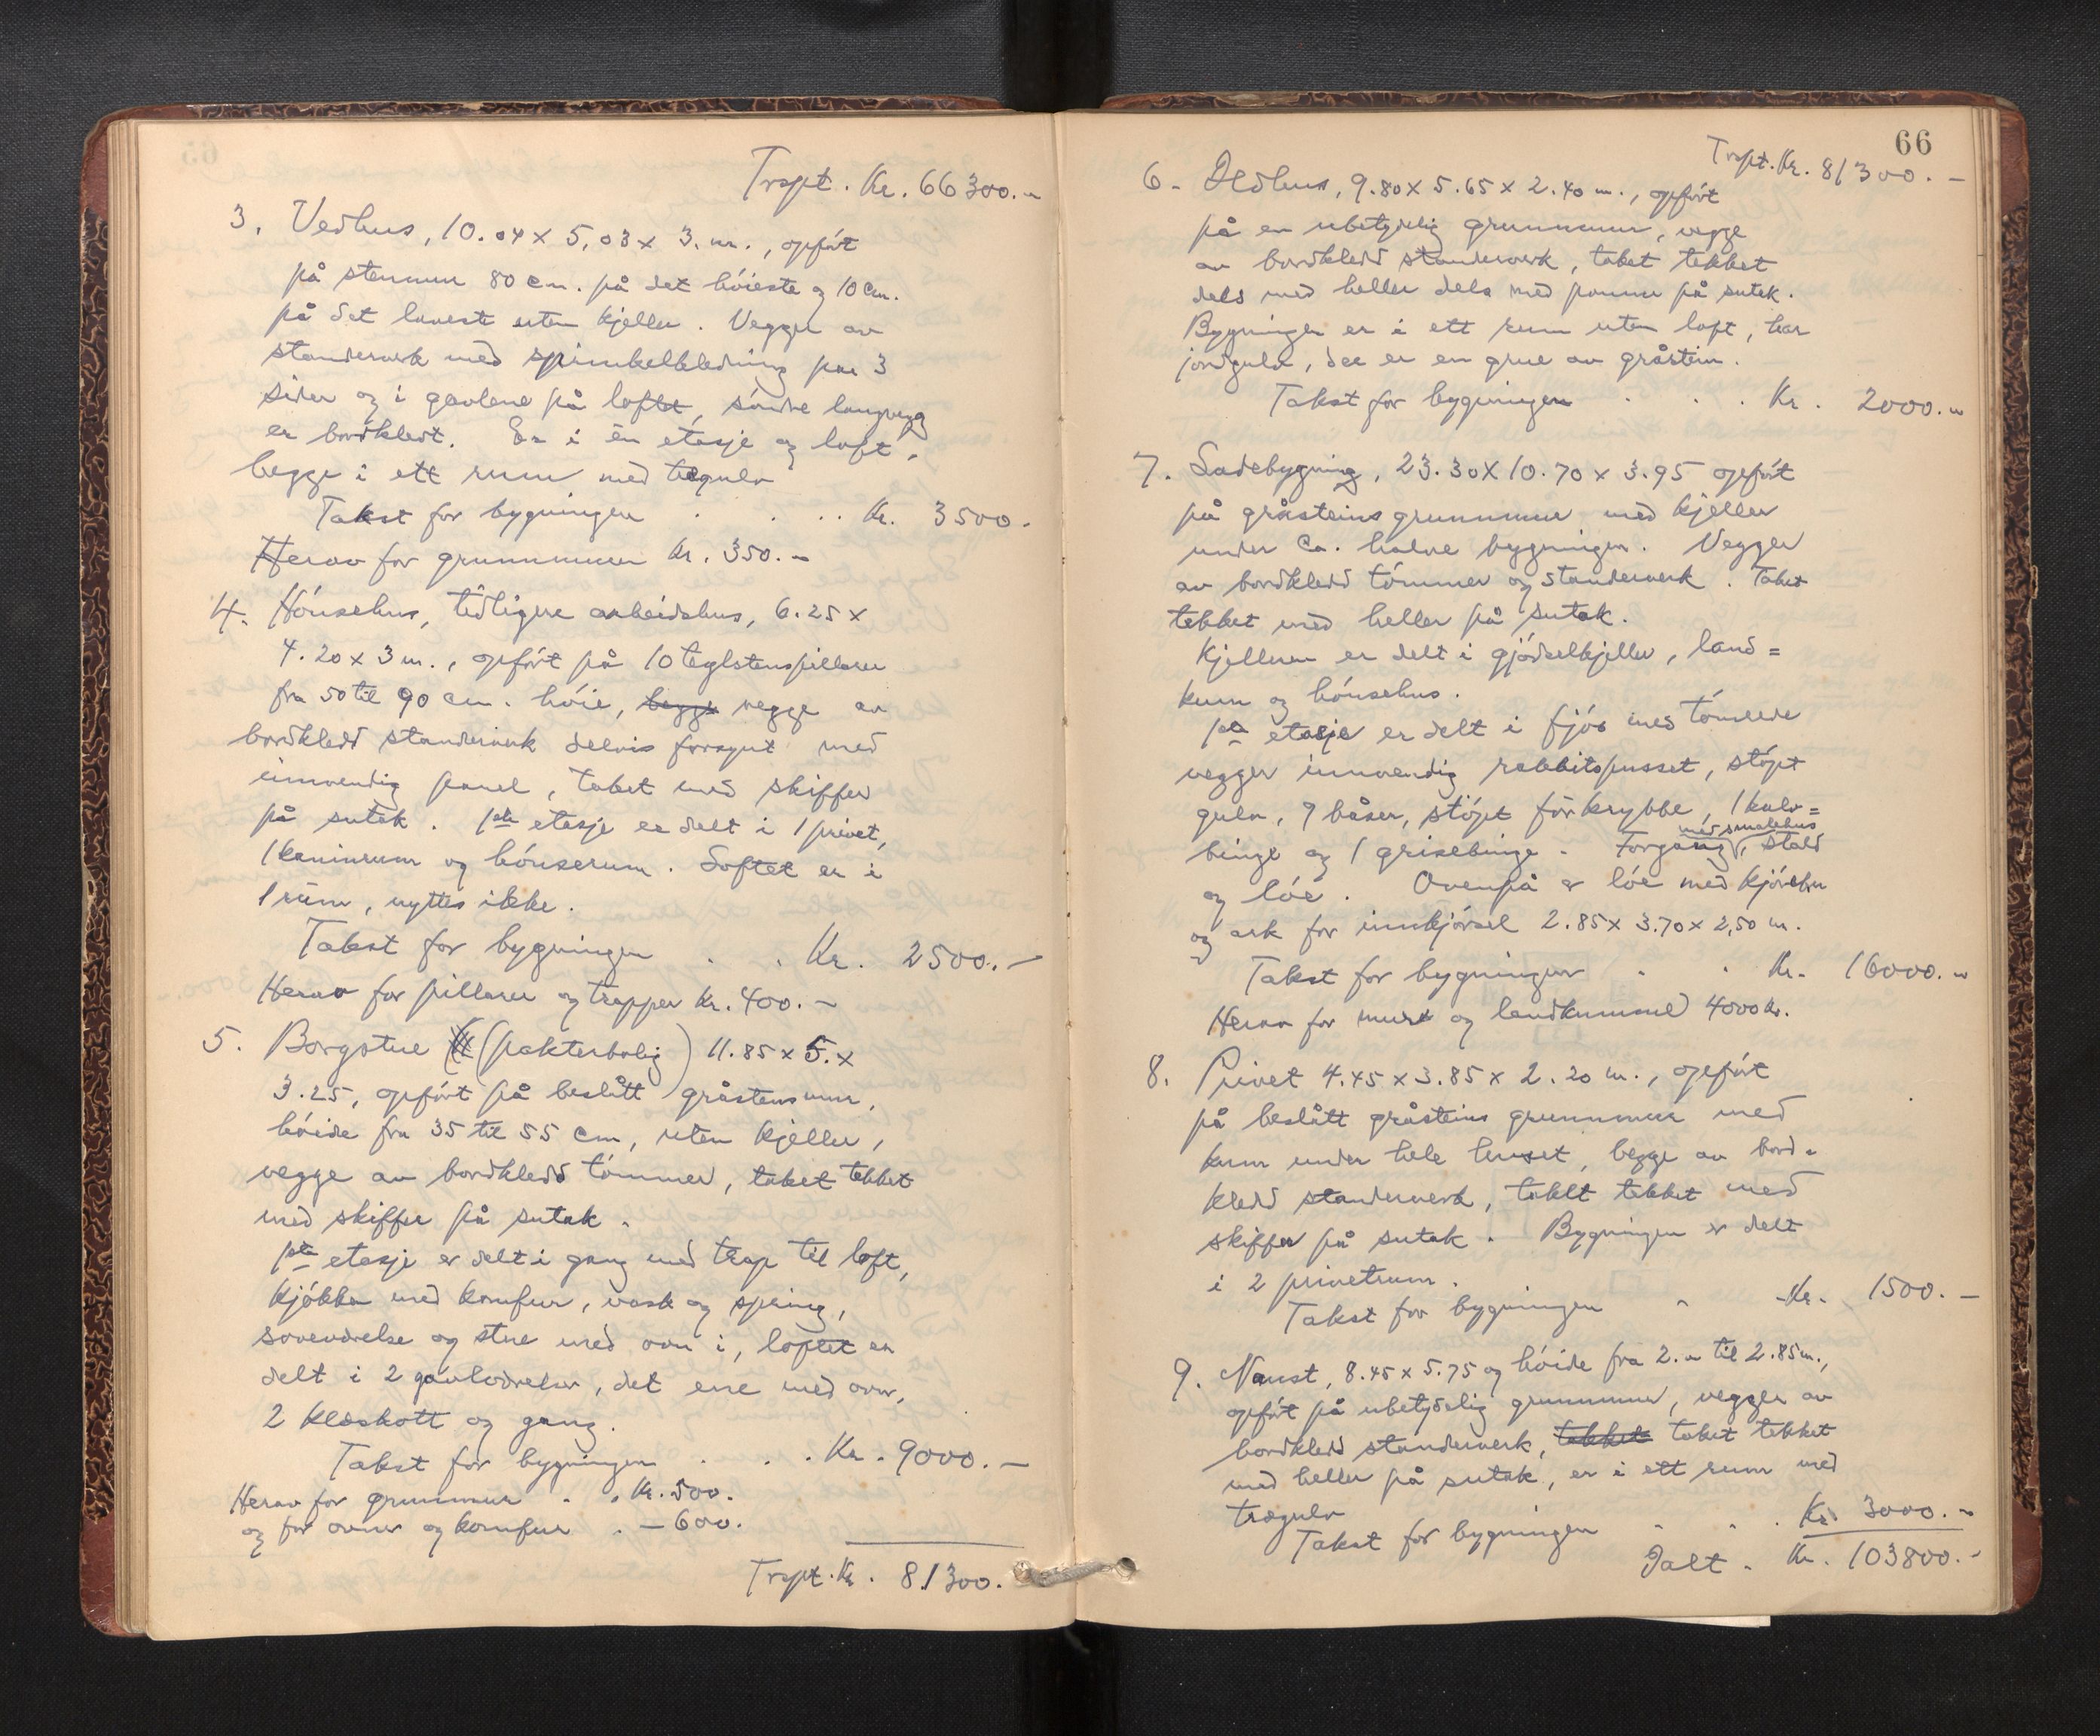 Trspt. Kr. 66300.-
3. Vedhus, 10.04 x 5,03 x 3. m., opført
på stenmur 80 cm. på det høieste og 10 cm.
på det laveste uten kjeller. Vegger av
standerverk med sprinkelkledning paa 3
sider og i gavlene på loftet, søndre langvegg
er bordkledt. Er i én etasje og loft,
begge i ett rum med tregulv
Takst for bygningen . . . . Kr. 3500.
Herav for grunnmuren Kr. 350.-
4. Hónsehus, tidligere arbeidshus, 6.25 x
4.20 x 3 m., opført på 10 teglstenspillarer
fra 50 til 90 cm. høie, begge vegge av
bordkledd standerverk delvis forsynt med
innvendig panel, taket med skiffer
på sutak. 1ste etasje er delt i 1 privet,
1 kaninrum og hónserum. Loftet er i
1 rum, nyttes ikke.
Takst for bygningen . . Kr. 2500.-
Herav for pillarer og trapper Kr. 400.-
5. Borgstue (pakterbolig) 11.85 x 5. x
3.25, opført på beslått gråstensmur,
høide fra 35 til 55 cm, uten kjeller,
vegge av bordkledd tømmer, taket tekket
med skiffer på sutak.
1ste etasje er delt i gang med trap til loft,
kjøkken med komfur, vask og spring,
soveværelse og stue med ovn i, loftet er
delt i 2 gavlværelser, det ene med ovn,
2 kleskott og gang.
Takst for bygningen . . . Kr. 9000.-
Herav for grunnmur . . Kr. 500.
og for ovner og komfur . - 600.
Trspt. Kr. 81300.
66
Trspt. Kr. 81300.-
6. Eldhus, 9.80 x 5.65 x 2.40 m., opført
på en ubetydelig grunnmur, vegge
av bordkledd standerverk, taket tekket
dels med heller dels med panner på sutak.
Bygningen er i ett rum uten loft, har
jordgulv, der er en grue av gråstein.
Takst for bygningen . . . Kr. 2000.-
7. Ladebygning, 23.30 x 10.70 x 3.95 opført
på gråsteins grunnmur med kjeller
under ca. halve bygningen. Vegger
av bordkledd tómmer og standerverk. Taket
tekket med heller på sutak.
Kjelleren er delt i gjødselkjeller, land=
kum og hónsehus.
1ste etasje er delt i fjós med tómrede
vegger innvendig rabbitspusset, støpt
gulv, 9 båser, støpt fórkrybbe, 1 kalv=
binge og 1 grisebinge. Forgang, stald
med smalehus
og lóe. Ovenpå er lóe med kjórebru
og ark for innkjørsel 2.85 x 3.70 x 2,50 m.
Takst for bygningen . . Kr. 16000.-
Herav for mure og landkummel 4000 kr.
8. Privet 4.45 x 3.85 x 2.20 m., opført
på beslått gråsteins grunnmur med
kum under hele huset, begge av bord=
kledd standerverk, taket tekket med
skiffer på sutak. Bygningen er delt
i 2 privetrum.
Takst for bygningen . Kr. 1500.-
9. Naust, 8.45 x 5.75 og høide fra 2.- til 2.85 m.,
opført på ubetydelig grunnmur, vegger av
bordkledd standerverk, tekket taket tekket
med heller på sutak, er i ett rum med
trægulv
Takst for bygningen . . . Kr. 3000.-
Ialt . Kr. 103800.-